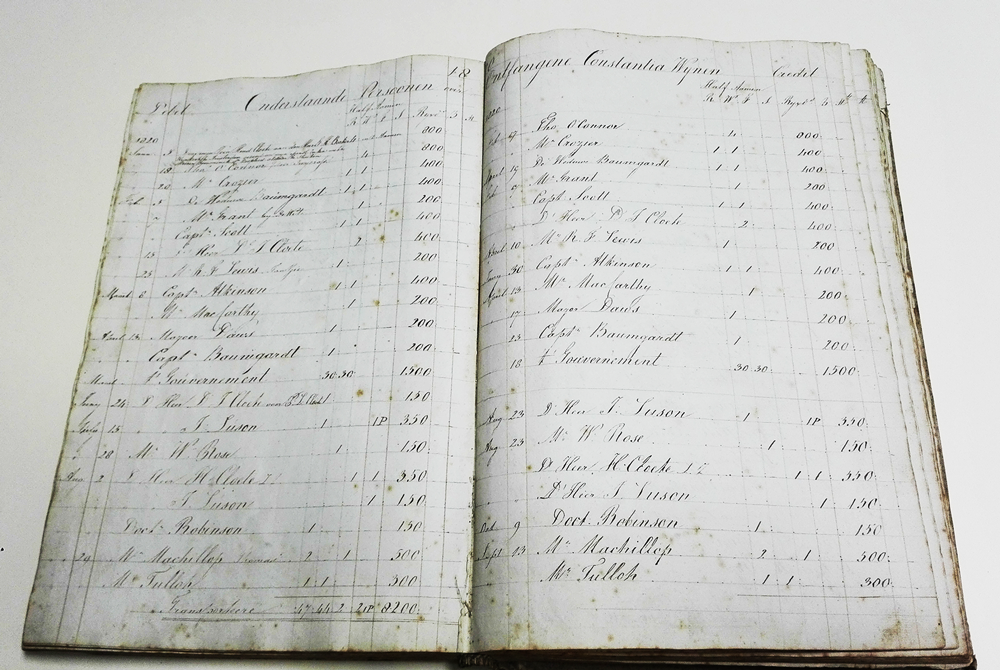 Debet Onderstaande Persoonen
Half Aamen
R W F S
1820
800
18 Tho O'Connor 4 800
20 Mr Crozier 1 1 400
Feb De Weduwe Baumgardt 1 1 400
Mr Grant 1 200
Capt Scott 1 1 400
13 d'Heer P L Cloete 2 400
23 Mr R F Lewis 1 200
Maart 6 Capt Atkinson 1 1 400
Mr Mac Carthy 1 200
April 13 Majoor Daws 1 200
Capt Baumgardt 1 200
't Gouvernement 30 30 1500
24 150
13 J. Suson 1 1P 350
28 Mr W Rose 1 150
2 d'Heer H Cloete 1 1 350
J Suson 1 150
Doct Robinson 1 150
29 Mr Machillop 2 1 500
Mr Tulloh 1 1 300
Transporteere 47 44 2 2 1P 8200
18
Ontfangene Constantia Wynen Credit
Half Aamen
R W F S
Tho O'Connor 4 800
Mr Crozier 1 1 400
April 19 De Weduwe Baumgardt 1 1 400
Mr Grant 1 200
Capt Scott 1 1 400
D'Heer P L Cloete 2 400
10 Mr R F Lewis 1 200
30 Capt Atkinson 1 1 400
April 13 Mr Mac Carthy 1 200
17 Major Daws 1 200
23 Capt Baumgardt 1 200
18 't Gouvernement 30 30 1500
Aug 23 D'Heer J. Suson 1 1P 350
Aug 23 Mr W Rose 1 150
D'Heer H Cloete 1 1 350
D'Heer J Suson 1 150
Oct 9 Doct Robinson 1 150
Sept 13 Mr Machillop 2 1 500
Mr Tulloh 1 1 300